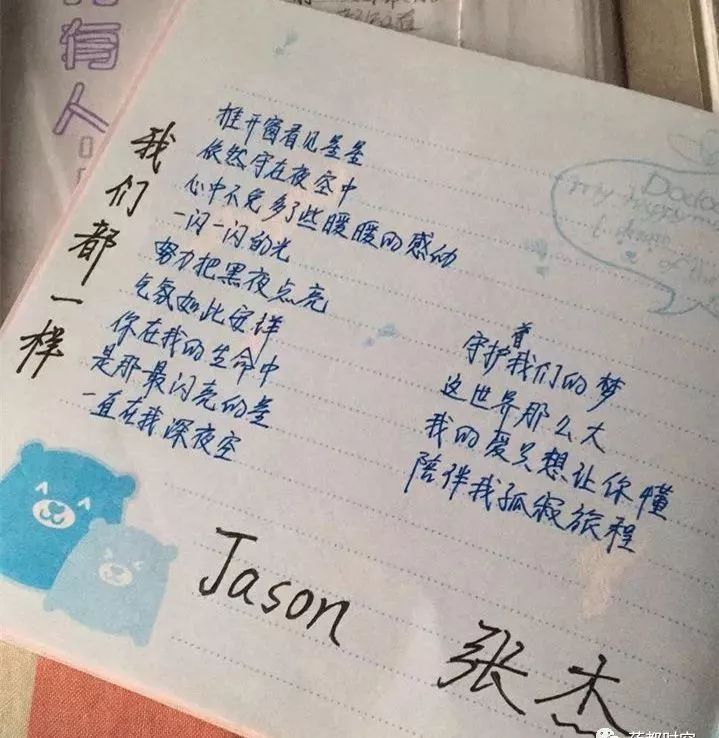 有人
我们都一样
推开窗看见星星
依然守在夜空中
心中不免多了些暖暖的感动
一闪一闪的光
努力把黑夜点亮
气氛如此安详
你在我的生命中
是那最闪亮的星
一直在我深夜空
守护着我们的梦
这世界那么大
我的爱只想让你懂
陪伴我孤寂旅程
Jason 张杰
my happy